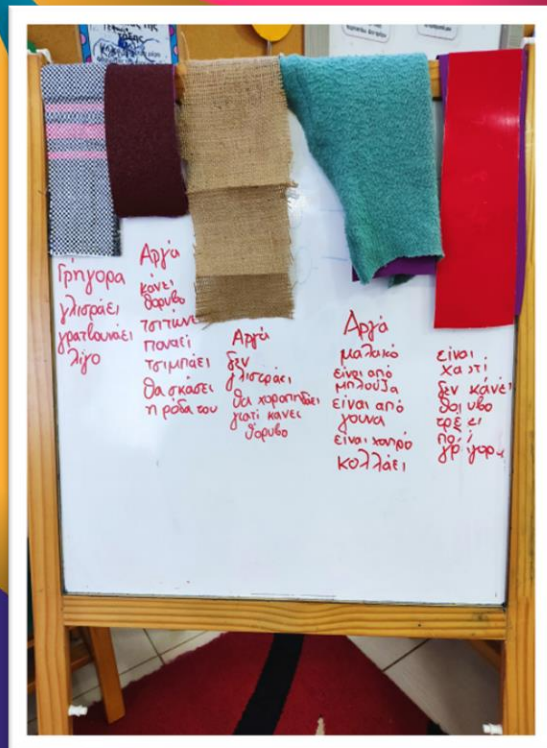 Γρήγορα
γλιστράει
γρατσουνάει
λίγο
Αργά
κάνει
θόρυβο
τσιτώνει
πονάει
τσιμπάει
θα σκάσει
η ρόδα του
Αργά
δεν
γλιστράει
θα χοροπηδάει
γιατί κάνει
θόρυβο
Αργά
μαλακό
είναι από
μπλούζα
είναι από
γούνα
είναι χοντρό
κολλάει
είναι
χαρτί
δεν κάνει
θόρυβο
τρέχει
πολύ
γρήγορα